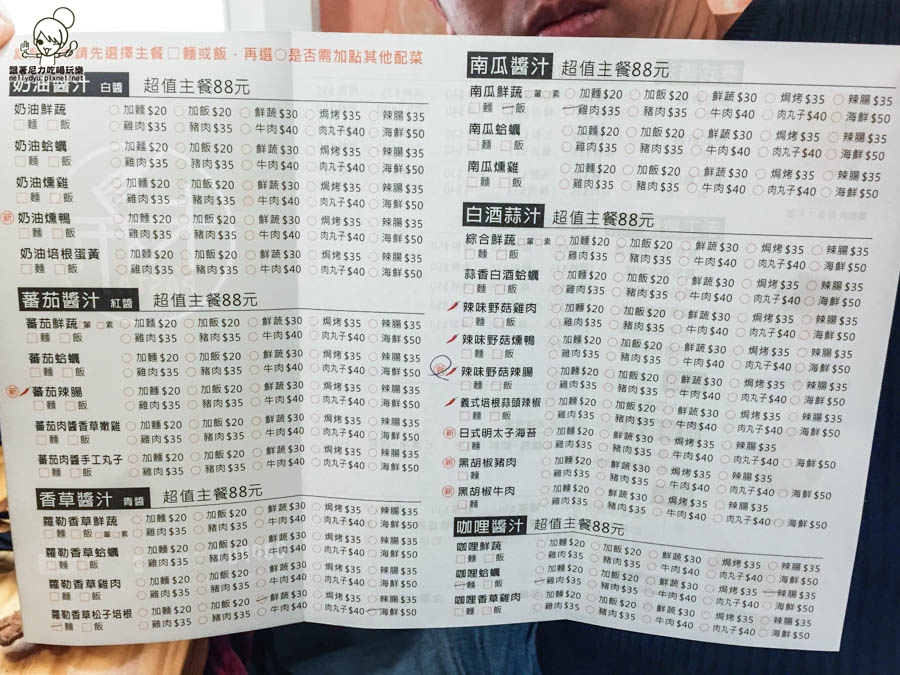 跟著尼力吃喝玩樂
nellydyu.pixnet.net
請先選擇主餐□麵或飯，再選○是否需加點其他配菜
奶油醬汁 白醬 超值主餐88元
奶油鮮蔬 ○加麵$20 ○加飯$20 ○鮮蔬$30 ○焗烤$35 ○辣腸$35
□麵 □飯 ○雞肉$35 ○豬肉$35 ○牛肉$40 ○肉丸子$40 ○海鮮$50
奶油蛤蠣 ○加麵$20 ○加飯$20 ○鮮蔬$30 ○焗烤$35 ○辣腸$35
□麵 □飯 ○雞肉$35 ○豬肉$35 ○牛肉$40 ○肉丸子$40 ○海鮮$50
奶油燻雞 ○加麵$20 ○加飯$20 ○鮮蔬$30 ○焗烤$35 ○辣腸$35
□麵 □飯 ○雞肉$35 ○豬肉$35 ○牛肉$40 ○肉丸子$40 ○海鮮$50
新 奶油燻鴨 ○加麵$20 ○加飯$20 ○鮮蔬$30 ○焗烤$35 ○辣腸$35
□麵 □飯 ○雞肉$35 ○豬肉$35 ○牛肉$40 ○肉丸子$40 ○海鮮$50
奶油培根蛋黃 ○加麵$20 ○加飯$20 ○鮮蔬$30 ○焗烤$35 ○辣腸$35
□麵 □飯 ○雞肉$35 ○豬肉$35 ○牛肉$40 ○肉丸子$40 ○海鮮$50
蕃茄醬汁 紅醬 超值主餐88元
蕃茄鮮蔬□葷□素 ○加麵$20 ○加飯$20 ○鮮蔬$30 ○焗烤$35 ○辣腸$35
□麵 □飯 ○雞肉$35 ○豬肉$35 ○牛肉$40 ○肉丸子$40 ○海鮮$50
蕃茄蛤蠣 ○加麵$20 ○加飯$20 ○鮮蔬$30 ○焗烤$35 ○辣腸$35
□麵 □飯 ○雞肉$35 ○豬肉$35 ○牛肉$40 ○肉丸子$40 ○海鮮$50
新 蕃茄辣腸 ○加麵$20 ○加飯$20 ○鮮蔬$30 ○焗烤$35 ○辣腸$35
□麵 □飯 ○雞肉$35 ○豬肉$35 ○牛肉$40 ○肉丸子$40 ○海鮮$50
蕃茄肉醬香草嫩雞 ○加麵$20 ○加飯$20 ○鮮蔬$30 ○焗烤$35 ○辣腸$35
□麵 □飯 ○雞肉$35 ○豬肉$35 ○牛肉$40 ○肉丸子$40 ○海鮮$50
蕃茄肉醬手工丸子 ○加麵$20 ○加飯$20 ○鮮蔬$30 ○焗烤$35 ○辣腸$35
□麵 □飯 ○雞肉$35 ○豬肉$35 ○牛肉$40 ○肉丸子$40 ○海鮮$50
香草醬汁 青醬 超值主餐88元
蘿勒香草鮮蔬 ○加麵$20 ○加飯$20 ○鮮蔬$30 ○焗烤$35 ○辣腸$35
□麵 □飯□葷□素 ○雞肉$35 ○豬肉$35 ○牛肉$40 ○肉丸子$40 ○海鮮$50
蘿勒香草蛤蠣 ○加麵$20 ○加飯$20 ○鮮蔬$30 ○焗烤$35 ○辣腸$35
□麵 □飯 ○雞肉$35 ○豬肉$35 ○牛肉$40 ○肉丸子$40 ○海鮮$50
蘿勒香草雞肉 ○加麵$20 ○加飯$20 ○鮮蔬$30 ○焗烤$35 ○辣腸$35
□麵 □飯 ○雞肉$35 ○豬肉$35 ○牛肉$40 ○肉丸子$40 ○海鮮$50
蘿勒香草松子培根 ○加麵$20 ○加飯$20 ○鮮蔬$30 ○焗烤$35 ○辣腸$35
□麵 □飯 ○雞肉$35 ○豬肉$35 ○牛肉$40 ○肉丸子$40 ○海鮮$50
南瓜醬汁 超值主餐88元
南瓜鮮蔬□葷□素 ○加麵$20 ○加飯$20 ○鮮蔬$30 ○焗烤$35 ○辣腸$35
□麵 □飯 ○雞肉$35 ○豬肉$35 ○牛肉$40 ○肉丸子$40 ○海鮮$50
南瓜蛤蠣 ○加麵$20 ○加飯$20 ○鮮蔬$30 ○焗烤$35 ○辣腸$35
□麵 □飯 ○雞肉$35 ○豬肉$35 ○牛肉$40 ○肉丸子$40 ○海鮮$50
南瓜燻雞 ○加麵$20 ○加飯$20 ○鮮蔬$30 ○焗烤$35 ○辣腸$35
□麵 □飯 ○雞肉$35 ○豬肉$35 ○牛肉$40 ○肉丸子$40 ○海鮮$50
白酒蒜汁 超值主餐88元
綜合鮮蔬□葷□素 ○加麵$20 ○加飯$20 ○鮮蔬$30 ○焗烤$35 ○辣腸$35
□麵 □飯 ○雞肉$35 ○豬肉$35 ○牛肉$40 ○肉丸子$40 ○海鮮$50
蒜香白酒蛤蠣 ○加麵$20 ○加飯$20 ○鮮蔬$30 ○焗烤$35 ○辣腸$35
□麵 □飯 ○雞肉$35 ○豬肉$35 ○牛肉$40 ○肉丸子$40 ○海鮮$50
辣味野菇雞肉 ○加麵$20 ○加飯$20 ○鮮蔬$30 ○焗烤$35 ○辣腸$35
□麵 □飯 ○雞肉$35 ○豬肉$35 ○牛肉$40 ○肉丸子$40 ○海鮮$50
辣味野菇燻鴨 ○加麵$20 ○加飯$20 ○鮮蔬$30 ○焗烤$35 ○辣腸$35
□麵 □飯 ○雞肉$35 ○豬肉$35 ○牛肉$40 ○肉丸子$40 ○海鮮$50
新 辣味野菇辣腸 ○加麵$20 ○加飯$20 ○鮮蔬$30 ○焗烤$35 ○辣腸$35
□麵 □飯 ○雞肉$35 ○豬肉$35 ○牛肉$40 ○肉丸子$40 ○海鮮$50
義式培根蒜頭辣椒 ○加麵$20 ○加飯$20 ○鮮蔬$30 ○焗烤$35 ○辣腸$35
□麵 □飯 ○雞肉$35 ○豬肉$35 ○牛肉$40 ○肉丸子$40 ○海鮮$50
新 日式明太子海苔 ○加麵$20 ○加飯$20 ○鮮蔬$30 ○焗烤$35 ○辣腸$35
□麵 ○雞肉$35 ○豬肉$35 ○牛肉$40 ○肉丸子$40 ○海鮮$50
新 黑胡椒豬肉 ○加麵$20 ○加飯$20 ○鮮蔬$30 ○焗烤$35 ○辣腸$35
□麵 ○雞肉$35 ○豬肉$35 ○牛肉$40 ○肉丸子$40 ○海鮮$50
新 黑胡椒牛肉 ○加麵$20 ○加飯$20 ○鮮蔬$30 ○焗烤$35 ○辣腸$35
□麵 ○雞肉$35 ○豬肉$35 ○牛肉$40 ○肉丸子$40 ○海鮮$50
咖哩醬汁 超值主餐88元
咖哩鮮蔬 ○加麵$20 ○加飯$20 ○鮮蔬$30 ○焗烤$35 ○辣腸$35
□麵 □飯 ○雞肉$35 ○豬肉$35 ○牛肉$40 ○肉丸子$40 ○海鮮$50
咖哩蛤蠣 ○加麵$20 ○加飯$20 ○鮮蔬$30 ○焗烤$35 ○辣腸$35
□麵 □飯 ○雞肉$35 ○豬肉$35 ○牛肉$40 ○肉丸子$40 ○海鮮$50
咖哩香草雞肉 ○加麵$20 ○加飯$20 ○鮮蔬$30 ○焗烤$35 ○辣腸$35
□麵 □飯 ○雞肉$35 ○豬肉$35 ○牛肉$40 ○肉丸子$40 ○海鮮$50